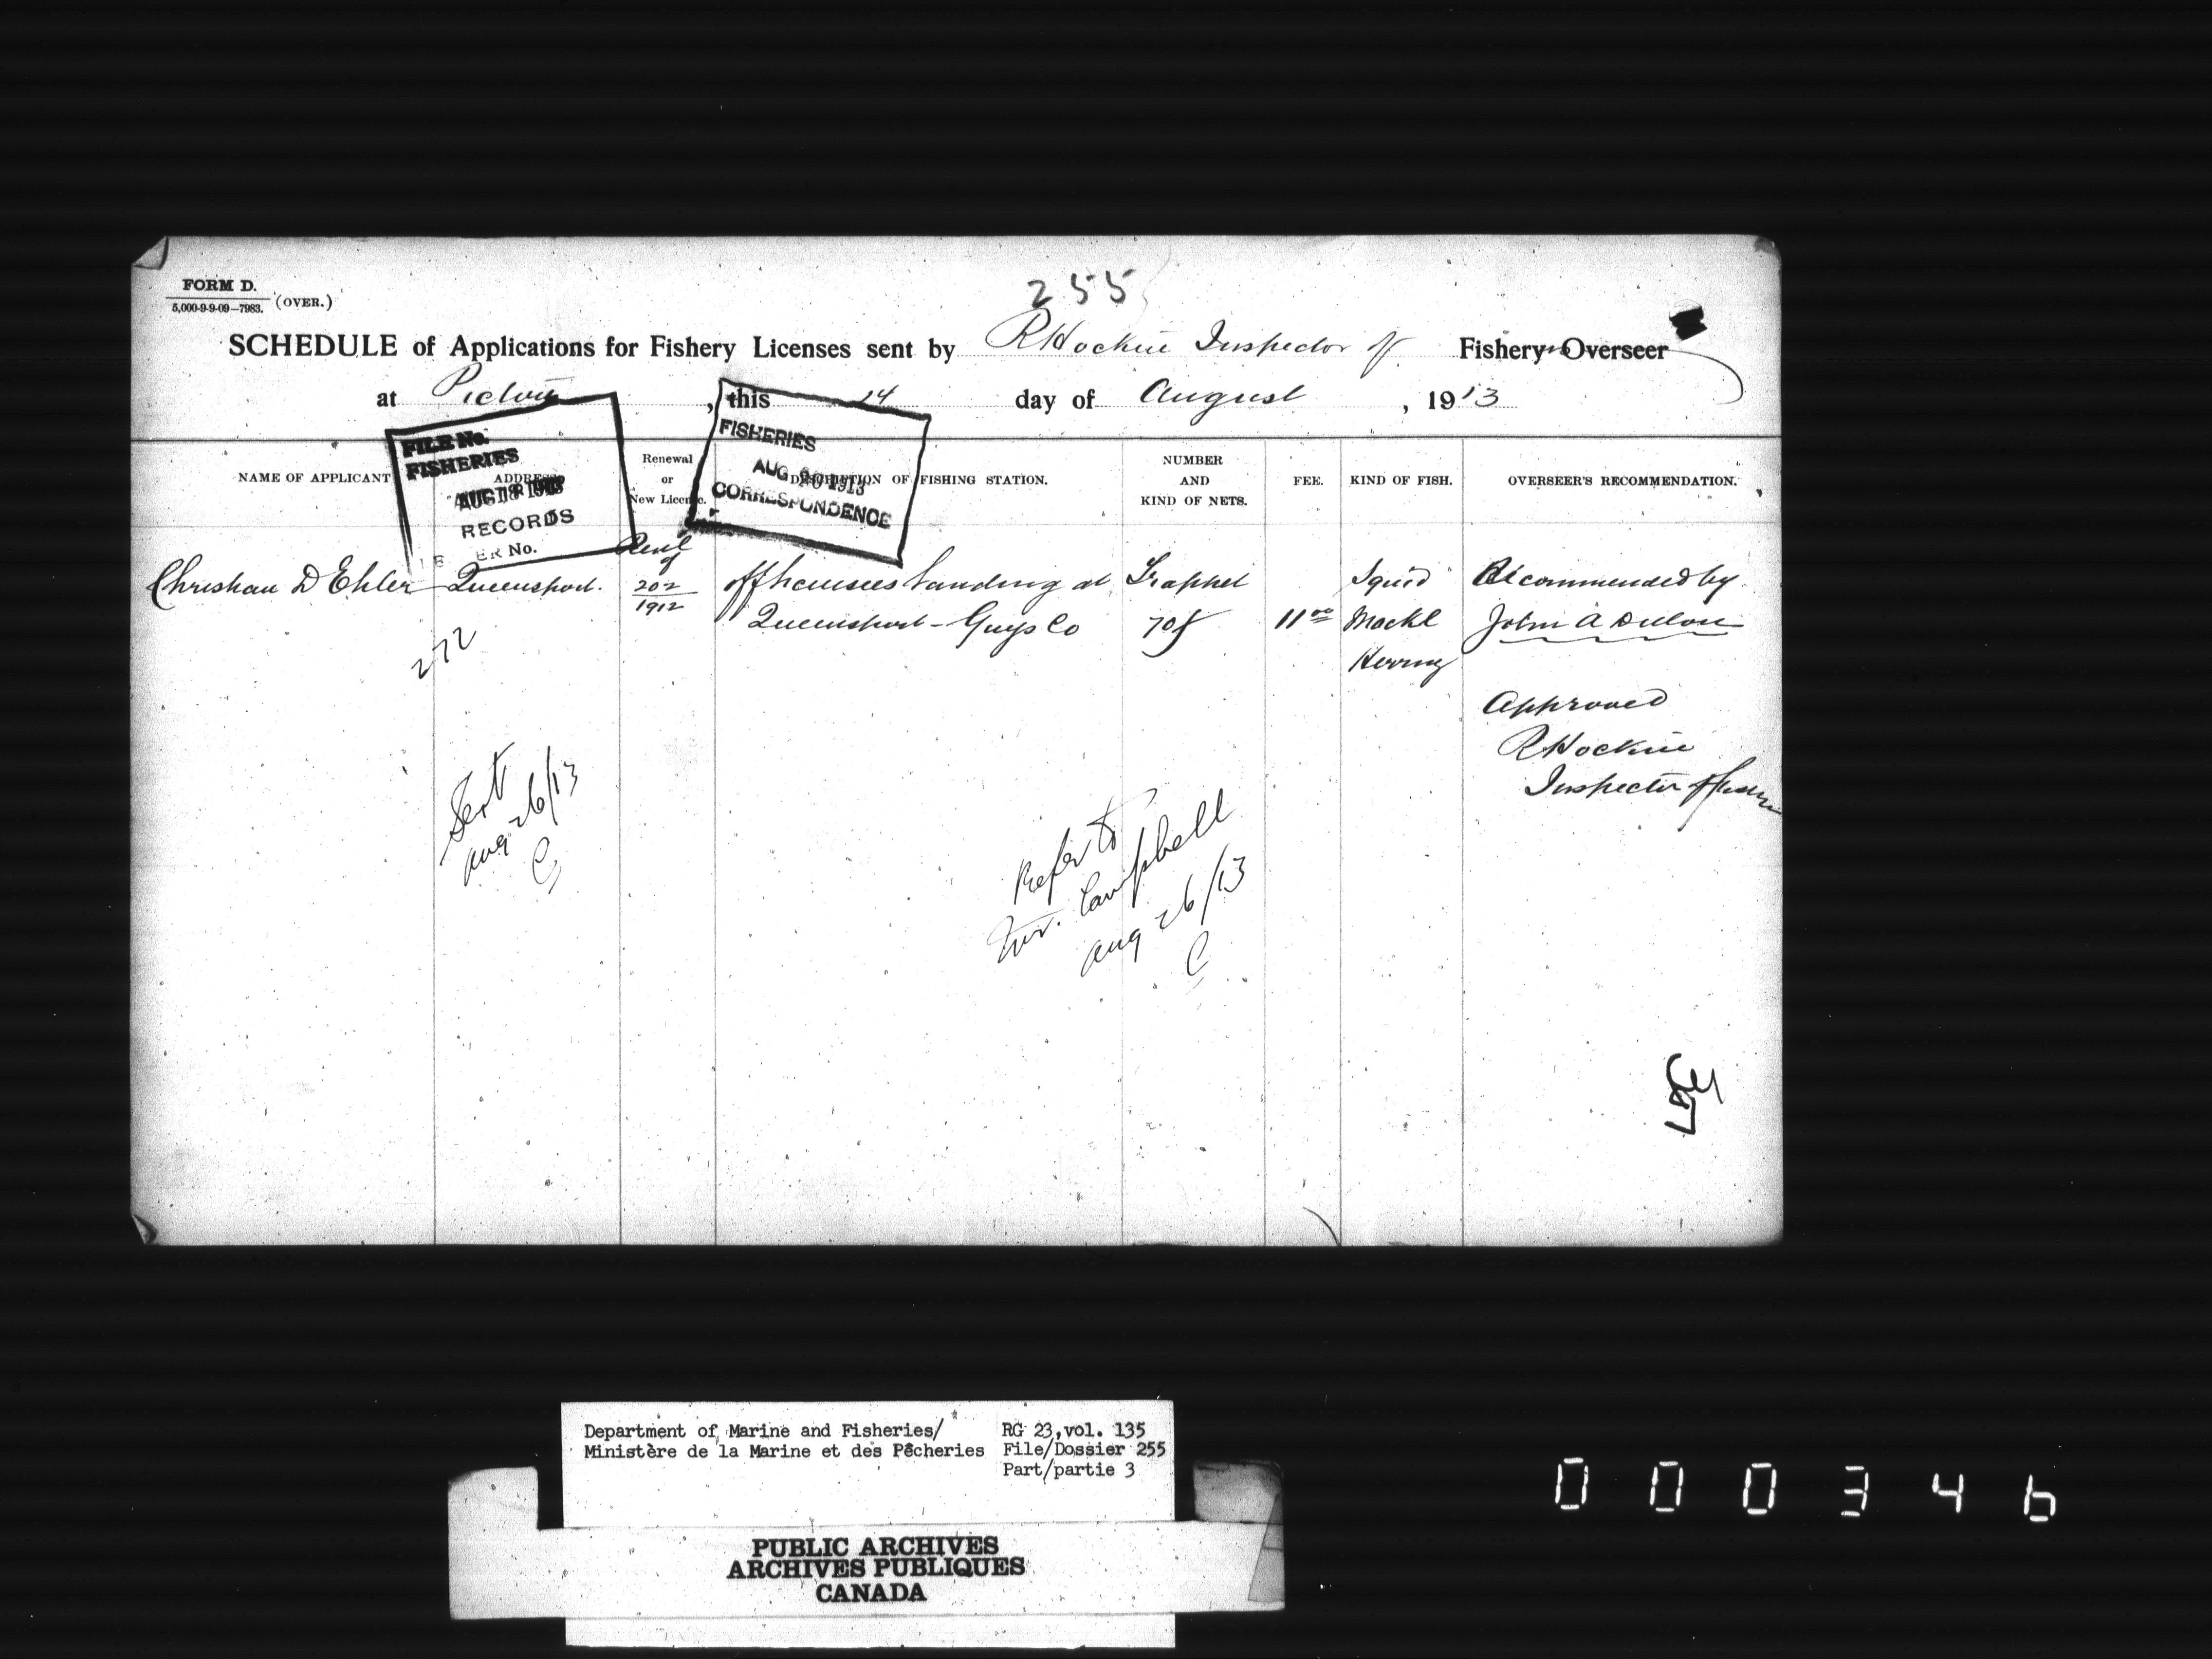 FORM D.
5,000-9-9-09—7983.
(OVER.)
255
SCHEDULE of Applications for Fishery Licenses sent by R Hockin Inspector of Fishery Overseer
at Pictou, this 14 day of August, 1913
FILE No.
FISHERIES
AUG 18 1913
RECORDS
ER No.
FISHERIES
AUG 20 1913
CORRESPONDENCE
NAME OF APPLICANT
ADDRESS
Renewal
or
New Licence.
DESCRIPTION OF FISHING STATION.
NUMBER
AND
KIND OF NETS.
FEE.
KIND OF FISH.
OVERSEER'S RECOMMENDATION.
Christian D Ehler
Queensport.
Renl
of
202
1912
off
Landing at
Queensport - Guys Co
Trapnet
70f
11 00
Squid
Mackl
Herring
Recommended by
John A Dillon
272
Approved
R Hockin
Inspector of
Sent
Aug 26/13
C
Refer to
Mr. Campbell
Aug 26/13
C
Department of Marine and Fisheries/
Ministère de la Marine et des Pêcheries
RG 23, vol. 135
File/Dossier 255
Part/partie 3
PUBLIC ARCHIVES
ARCHIVES PUBLIQUES
CANADA
000346